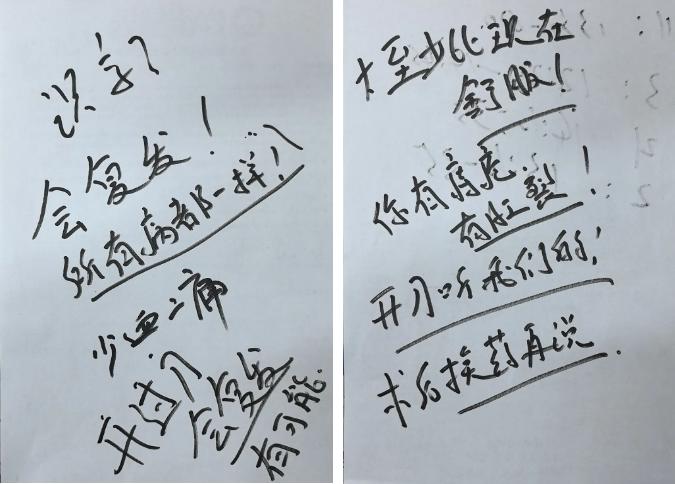 识字?
会复发!
所有病都一样!
少血、痛
开过了
会复发
有可能.
至少比现在
舒服!
你有痔疮.
有肛裂!
开刀听我们的!
术后换药再说.